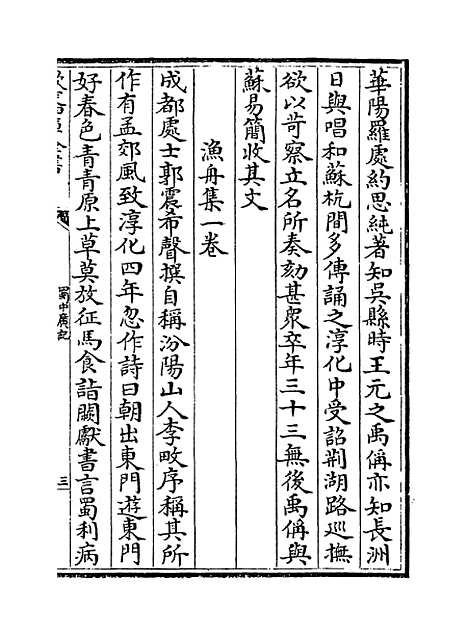 華陽羅處約思純著知吳縣時王元之禹偁亦知長洲
日與唱和蘇杭間多傳誦之淳化中受詔荆湖路巡撫
欲以苛察立名所奏劾甚衆卒年三十三無後禹偁與
蘇易簡收其文
漁舟集一卷
成都處士郭震希聲撰自稱汾陽山人李畋序稱其所
作有孟郊風致淳化四年忽作詩曰朝出東門遊東門
好春色青青原上草莫放征馬食詣闕獻書言蜀利病
蜀中廣記
三